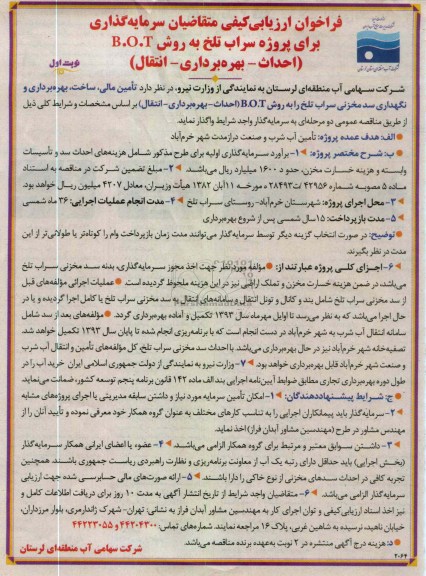 فراخوان ارزیابی‌کیفی متقاضیان سرمایه‌گذاری
برای پروژه سراب تلخ به روش B.O.T
(احداث - بهره‌برداری - انتقال)
نوبت اول
شرکت سهامی آب منطقه‌ای لرستان به نمایندگی از وزارت نیرو، در نظر دارد تأمین مالی، ساخت، بهره‌برداری و
نگهداری سد مخزنی سراب تلخ را به روش B.O.T (احداث - بهره‌برداری - انتقال) بر اساس مشخصات و شرایط کلی ذیل
از طریق مناقصه عمومی دو مرحله‌ای به سرمایه‌گذار واجد شرایط واگذار نماید.
الف: هدف عمده پروژه: تأمین آب شرب و صنعت درازمدت شهر خرم‌آباد
ب: شرح مختصر پروژه: ۱- برآورد سرمایه‌گذاری اولیه برای طرح مذکور شامل هزینه‌های احداث سد و تأسیسات
وابسته و هزینه خسارت مخزن، حدود ۱۶۰۰ میلیارد ریال می‌باشد. ۲- مبلغ تضمین شرکت در مناقصه به استناد
ماده ۵ مصوبه شماره ۴۲۹۵۶/ت۲۸۴۹۳ه مورخه ۱۱ آبان ۱۳۸۲ هیأت وزیران، معادل ۴۲۰۷ میلیون ریال خواهد بود.
۳- محل اجرای پروژه: شهرستان خرم‌آباد- روستای سراب تلخ ۴- مدت انجام عملیات اجرایی: ۳۶ ماه شمسی
۵- مدت بازپرداخت: ۱۵ سال شمسی پس از شروع بهره‌برداری
توضیح: در صورت انتخاب گزینه دیگر توسط سرمایه‌گذار می‌توانند مدت زمان بازپرداخت وام را کوتاه‌تر یا طولانی‌تر از این
مدت در نظر بگیرند.
۶- اجزای کلی پروژه عبارتند از: مؤلفه مورد نظر جهت اخذ مجوز سرمایه‌گذاری، بدنه سد مخزنی سراب تلخ
می‌باشد، در ضمن هزینه خسارت مخزن و تملک اراضی نیز در این هزینه ملحوظ گردیده است. عملیات اجرائی مؤلفه‌های قبل
از سد مخزنی سراب تلخ شامل بند و کانال و تونل انتقال به سامانه‌های انتقال به سد مخزنی سراب تلخ یا کامل اجرا گردیده و یا در
حال اجرا می‌باشد که به نظر می‌رسد تا اوایل مهرماه سال ۱۳۹۳ تکمیل و آماده بهره‌برداری گردد. مؤلفه‌های بعد از سد شامل
سامانه انتقال آب شرب به شهر خرم‌آباد در دست انجام است که با برنامه‌ریزی انجام شده تا پایان سال ۱۳۹۳ تکمیل خواهد شد.
تصفیه‌خانه شهر خرم‌آباد نیز در حال بهره‌برداری می‌باشد. با احداث سد مخزنی سراب تلخ، کل مؤلفه‌های تأمین و انتقال آب شرب
و صنعت شهر خرم‌آباد قابل بهره‌برداری خواهد بود. ۷- وزارت نیرو به نمایندگی از دولت جمهوری اسلامی ایران خرید آب را در
طول دوره بهره‌برداری تجاری مطابق ضوابط آیین‌نامه اجرایی بند الف ماده ۱۴۲ قانون برنامه پنجم توسعه کشور، ضمانت می‌نماید.
ج: شرایط پیشنهاددهندگان: ۱- امکان تأمین سرمایه مورد نیاز و داشتن سابقه مدیریتی یا اجرای پروژه‌های مشابه
۲- سرمایه‌گذار باید پیمانکاران اجرایی را به تناسب کارهای مختلف به عنوان گروه همکار خود معرفی نموده و تأیید آنان را از
مهندس مشاور در طرح (مهندسین مشاور آبدان فراز) اخذ نماید.
۳- داشتن سوابق معتبر و مرتبط برای گروه همکار الزامی می‌باشد. ۴- عضو یا اعضای ایرانی همکار سرمایه‌گذار
(بخش اجرایی) باید حداقل دارای رتبه یک آب از معاونت برنامه‌ریزی و نظارت راهبردی ریاست جمهوری باشند. همچنین
تجربه کافی در احداث سدهای مخزنی از نوع خاکی را دارا باشند. ۵- ارائه صورت‌های مالی حسابرسی شده جهت ارزیابی
سرمایه‌گذار الزامی می‌باشد. ۶- متقاضیان واجد شرایط از تاریخ انتشار آگهی به مدت ۱۰ روز برای دریافت اطلاعات کامل و
نیز اخذ اسناد ارزیابی کیفی و توان اجرای کار به مهندسین مشاور آبدان فراز به نشانی: تهران- شهرک ژاندارمری، بلوار مرزداران،
خیابان ناهید، نرسیده به شاهین غربی، پلاک ۱۶ مراجعه نمایند. شماره‌های تماس: ۴۴۲۰۴۳۰۰ و ۴۴۲۲۳۰۵۵
د: هزینه درج آگهی منتشره در ۲ نوبت به‌عهده برنده مناقصه می‌باشد.
شرکت سهامی آب منطقه‌ای لرستان
۲۰۶۴